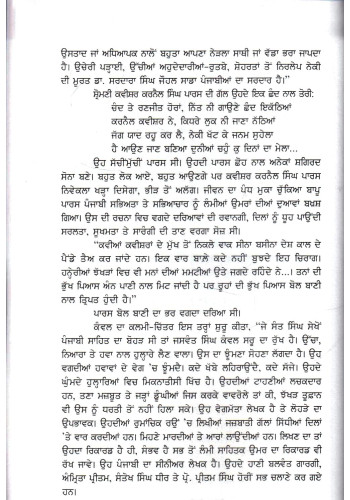 ਉਸਤਾਦ ਜਾਂ ਅਧਿਆਪਕ ਨਾਲੋਂ ਬਹੁਤਾ ਆਪਣਾ ਨੇੜਲਾ ਸਾਥੀ ਜਾਂ ਵੱਡਾ ਭਰਾ ਜਾਪਦਾ
ਹੈ। ਉਚੇਰੀ ਪੜ੍ਹਾਈ, ਉੱਚੀਆਂ ਅਹੁਦੇਦਾਰੀਆਂ-ਰੁਤਬੇ, ਸ਼ੋਹਰਤਾਂ ਤੋਂ ਨਿਰਲੇਪ ਨੇਕੀ
ਦੀ ਮੂਰਤ ਡਾ. ਸਰਦਾਰਾ ਸਿੰਘ ਜੌਹਲ ਸਾਡਾ ਪੰਜਾਬੀਆਂ ਦਾ ਸਰਦਾਰ ਹੈ।”
ਸ਼੍ਰੋਮਣੀ ਕਵੀਸ਼ਰ ਕਰਨੈਲ ਸਿੰਘ ਪਾਰਸ ਦੀ ਗੱਲ ਉਹਦੇ ਇਕ ਛੰਦ ਨਾਲ ਤੋਰੀ:
ਚੰਦ ਤੇ ਰਣਜੀਤ ਹੋਰਾਂ, ਨਿੱਤ ਨੀ ਗਾਉਣੇ ਛੰਦ ਇਕੱਠਿਆਂ
ਕਰਨੈਲ ਕਵੀਸ਼ਰ ਨੇ, ਕਿਧਰੇ ਲੁਕ ਨੀ ਜਾਣਾ ਨੱਠਿਆਂ
ਜੱਗ ਯਾਦ ਰਹੂ ਕਰ ਲੈ, ਨੇਕੀ ਖੱਟ ਕੇ ਜਨਮ ਸੁਹੇਲਾ
ਹੈ ਆਉਣ ਜਾਣ ਬਣਿਆ ਦੁਨੀਆ ਚਹੁੰ ਕੁ ਦਿਨਾਂ ਦਾ ਮੇਲਾ...
ਉਹ ਸੱਚੀਂਮੁੱਚੀਂ ਪਾਰਸ ਸੀ। ਉਹਦੀ ਪਾਰਸ ਛੋਹ ਨਾਲ ਅਨੇਕਾਂ ਸ਼ਗਿਰਦ
ਸੋਨਾ ਬਣੇ। ਬਹੁਤ ਲੋਕ ਆਏ, ਬਹੁਤ ਆਉਣਗੇ ਪਰ ਕਵੀਸ਼ਰ ਕਰਨੈਲ ਸਿੰਘ ਪਾਰਸ
ਨਿਵੇਕਲਾ ਖੜ੍ਹਾ ਦਿਸੇਗਾ, ਭੀੜ ਤੋਂ ਅਲੱਗ। ਜੀਵਨ ਦਾ ਪੰਧ ਮੁਕਾ ਚੁੱਕਿਆ ਬਾਪੂ
ਪਾਰਸ ਪੰਜਾਬੀ ਸਭਿਅਤਾ ਤੇ ਸਭਿਆਚਾਰ ਨੂੰ ਲੰਮੀਆਂ ਉਮਰਾਂ ਦੀਆਂ ਦੁਆਵਾਂ ਬਖਸ਼
ਗਿਆ। ਉਸ ਦੀ ਰਚਨਾ ਵਿਚ ਵਗਦੇ ਦਰਿਆਵਾਂ ਦੀ ਰਵਾਨਗੀ, ਦਿਲਾਂ ਨੂੰ ਧੂਹ ਪਾਉਂਦੀ
ਸਰਲਤਾ, ਸੂਖਮਤਾ ਤੇ ਸਾਰੰਗੀ ਦੀ ਤਾਣ ਵਰਗਾ ਸੋਜ਼ ਸੀ।
“ਕਵੀਆਂ ਕਵੀਸ਼ਰਾਂ ਦੇ ਮੁੱਖ ਤੋਂ ਨਿਕਲੇ ਵਾਕ ਸੀਨਾ ਬਸੀਨਾ ਦੇਸ਼ ਕਾਲ ਦੇ
ਪੈਂਡੇ ਤੈਅ ਕਰ ਜਾਂਦੇ ਹਨ। ਇਕ ਵਾਰ ਬਾਲੇ ਕਦੇ ਨਹੀਂ ਬੁਝਦੇ ਇਹ ਚਿਰਾਗ।
ਹਨ੍ਹੇਰੀਆਂ ਝੱਖੜਾਂ ਵਿਚ ਵੀ ਮਨਾਂ ਦੀਆਂ ਮਮਟੀਆਂ ਉਤੇ ਜਗਦੇ ਰਹਿੰਦੇ ਨੇ...। ਤਨਾਂ ਦੀ
ਭੁੱਖ ਪਿਆਸ ਅੰਨ ਪਾਣੀ ਨਾਲ ਮਿਟ ਜਾਂਦੀ ਹੈ ਪਰ ਰੂਹਾਂ ਦੀ ਭੁੱਖ ਪਿਆਸ ਬੋਲ ਬਾਣੀ
ਨਾਲ ਤ੍ਰਿਪਤ ਹੁੰਦੀ ਹੈ।”
ਪਾਰਸ ਬੋਲ ਬਾਣੀ ਦਾ ਭਰ ਵਗਦਾ ਦਰਿਆ ਸੀ।
ਕੰਵਲ ਦਾ ਕਲਮੀ-ਚਿੱਤਰ ਇਸ ਤਰ੍ਹਾਂ ਸ਼ੁਰੂ ਕੀਤਾ, “ਜੇ ਸੰਤ ਸਿੰਘ ਸੇਖੋਂ
ਪੰਜਾਬੀ ਸਾਹਿਤ ਦਾ ਬੋਹੜ ਸੀ ਤਾਂ ਜਸਵੰਤ ਸਿੰਘ ਕੰਵਲ ਸਰੂ ਦਾ ਰੁੱਖ ਹੈ। ਉੱਚਾ,
ਨਿਆਰਾ ਤੇ ਹਵਾ ਨਾਲ ਹੁਲ੍ਹਾਰੇ ਲੈਣ ਵਾਲਾ। ਉਸ ਦਾ ਝੂੰਮਣਾ ਸੋਹਣਾ ਲੱਗਦਾ ਹੈ। ਉਹ
ਵਗਦੀਆਂ ਹਵਾਵਾਂ ਦੇ ਵੇਗ ’ਚ ਝੂੰਮਦੈ। ਕਦੇ ਖੱਬੇ ਲਹਿਰਾਉਂਦੈ, ਕਦੇ ਸੱਜੇ। ਉਹਦੇ
ਘੁੰਮਦੇ ਹੁਲ੍ਹਾਰਿਆਂ ਵਿਚ ਮਿਕਨਾਤੀਸੀ ਖਿੱਚ ਹੈ। ਉਹਦੀਆਂ ਟਾਹਣੀਆਂ ਲਚਕਦਾਰ
ਹਨ, ਤਣਾ ਮਜ਼ਬੂਤ ਤੇ ਜੜ੍ਹਾਂ ਡੂੰਘੀਆਂ ਜਿਸ ਕਰਕੇ ਵਾਵਰੋਲੇ ਤਾਂ ਕੀ, ਝੱਖੜ ਤੂਫ਼ਾਨ
ਵੀ ਉਸ ਨੂੰ ਧਰਤੀ ਤੋਂ ਨਹੀਂ ਹਿਲਾ ਸਕੇ। ਉਹ ਵੇਗਮੱਤਾ ਲੇਖਕ ਹੈ ਤੇ ਲੋਹੜੇ ਦਾ
ਉਪਭਾਵਕ। ਉਹਦੀਆਂ ਰੁਮਾਂਚਿਕ ਰਉਂ ’ਚ ਲਿਖੀਆਂ ਜਜ਼ਬਾਤੀ ਗੱਲਾਂ ਸਿੱਧੀਆਂ ਦਿਲਾਂ
’ਤੇ ਵਾਰ ਕਰਦੀਆਂ ਹਨ। ਮਿਹਣੇ ਮਾਰਦੀਆਂ ਤੇ ਆਰਾਂ ਲਾਉਂਦੀਆਂ ਹਨ। ਲਿਖਣ ਦਾ ਤਾਂ
ਉਹਦਾ ਰਿਕਾਰਡ ਹੈ ਹੀ, ਸੰਭਵ ਹੈ ਸਭ ਤੋਂ ਲੰਮੀ ਸਾਹਿਤਕ ਉਮਰ ਦਾ ਰਿਕਾਰਡ ਵੀ
ਰੱਖ ਜਾਵੇ। ਉਹ ਪੰਜਾਬੀ ਦਾ ਸੀਨੀਅਰ ਲੇਖਕ ਹੈ। ਉਹਦੇ ਹਾਣੀ ਬਲਵੰਤ ਗਾਰਗੀ,
ਅੰਮ੍ਰਿਤਾ ਪ੍ਰੀਤਮ, ਸੰਤੋਖ ਸਿੰਘ ਧੀਰ ਤੇ ਪ੍ਰੋ. ਪ੍ਰੀਤਮ ਸਿੰਘ ਹੋਰੀਂ ਸਭ ਚਲਾਣੇ ਕਰ ਗਏ
ਹਨ।